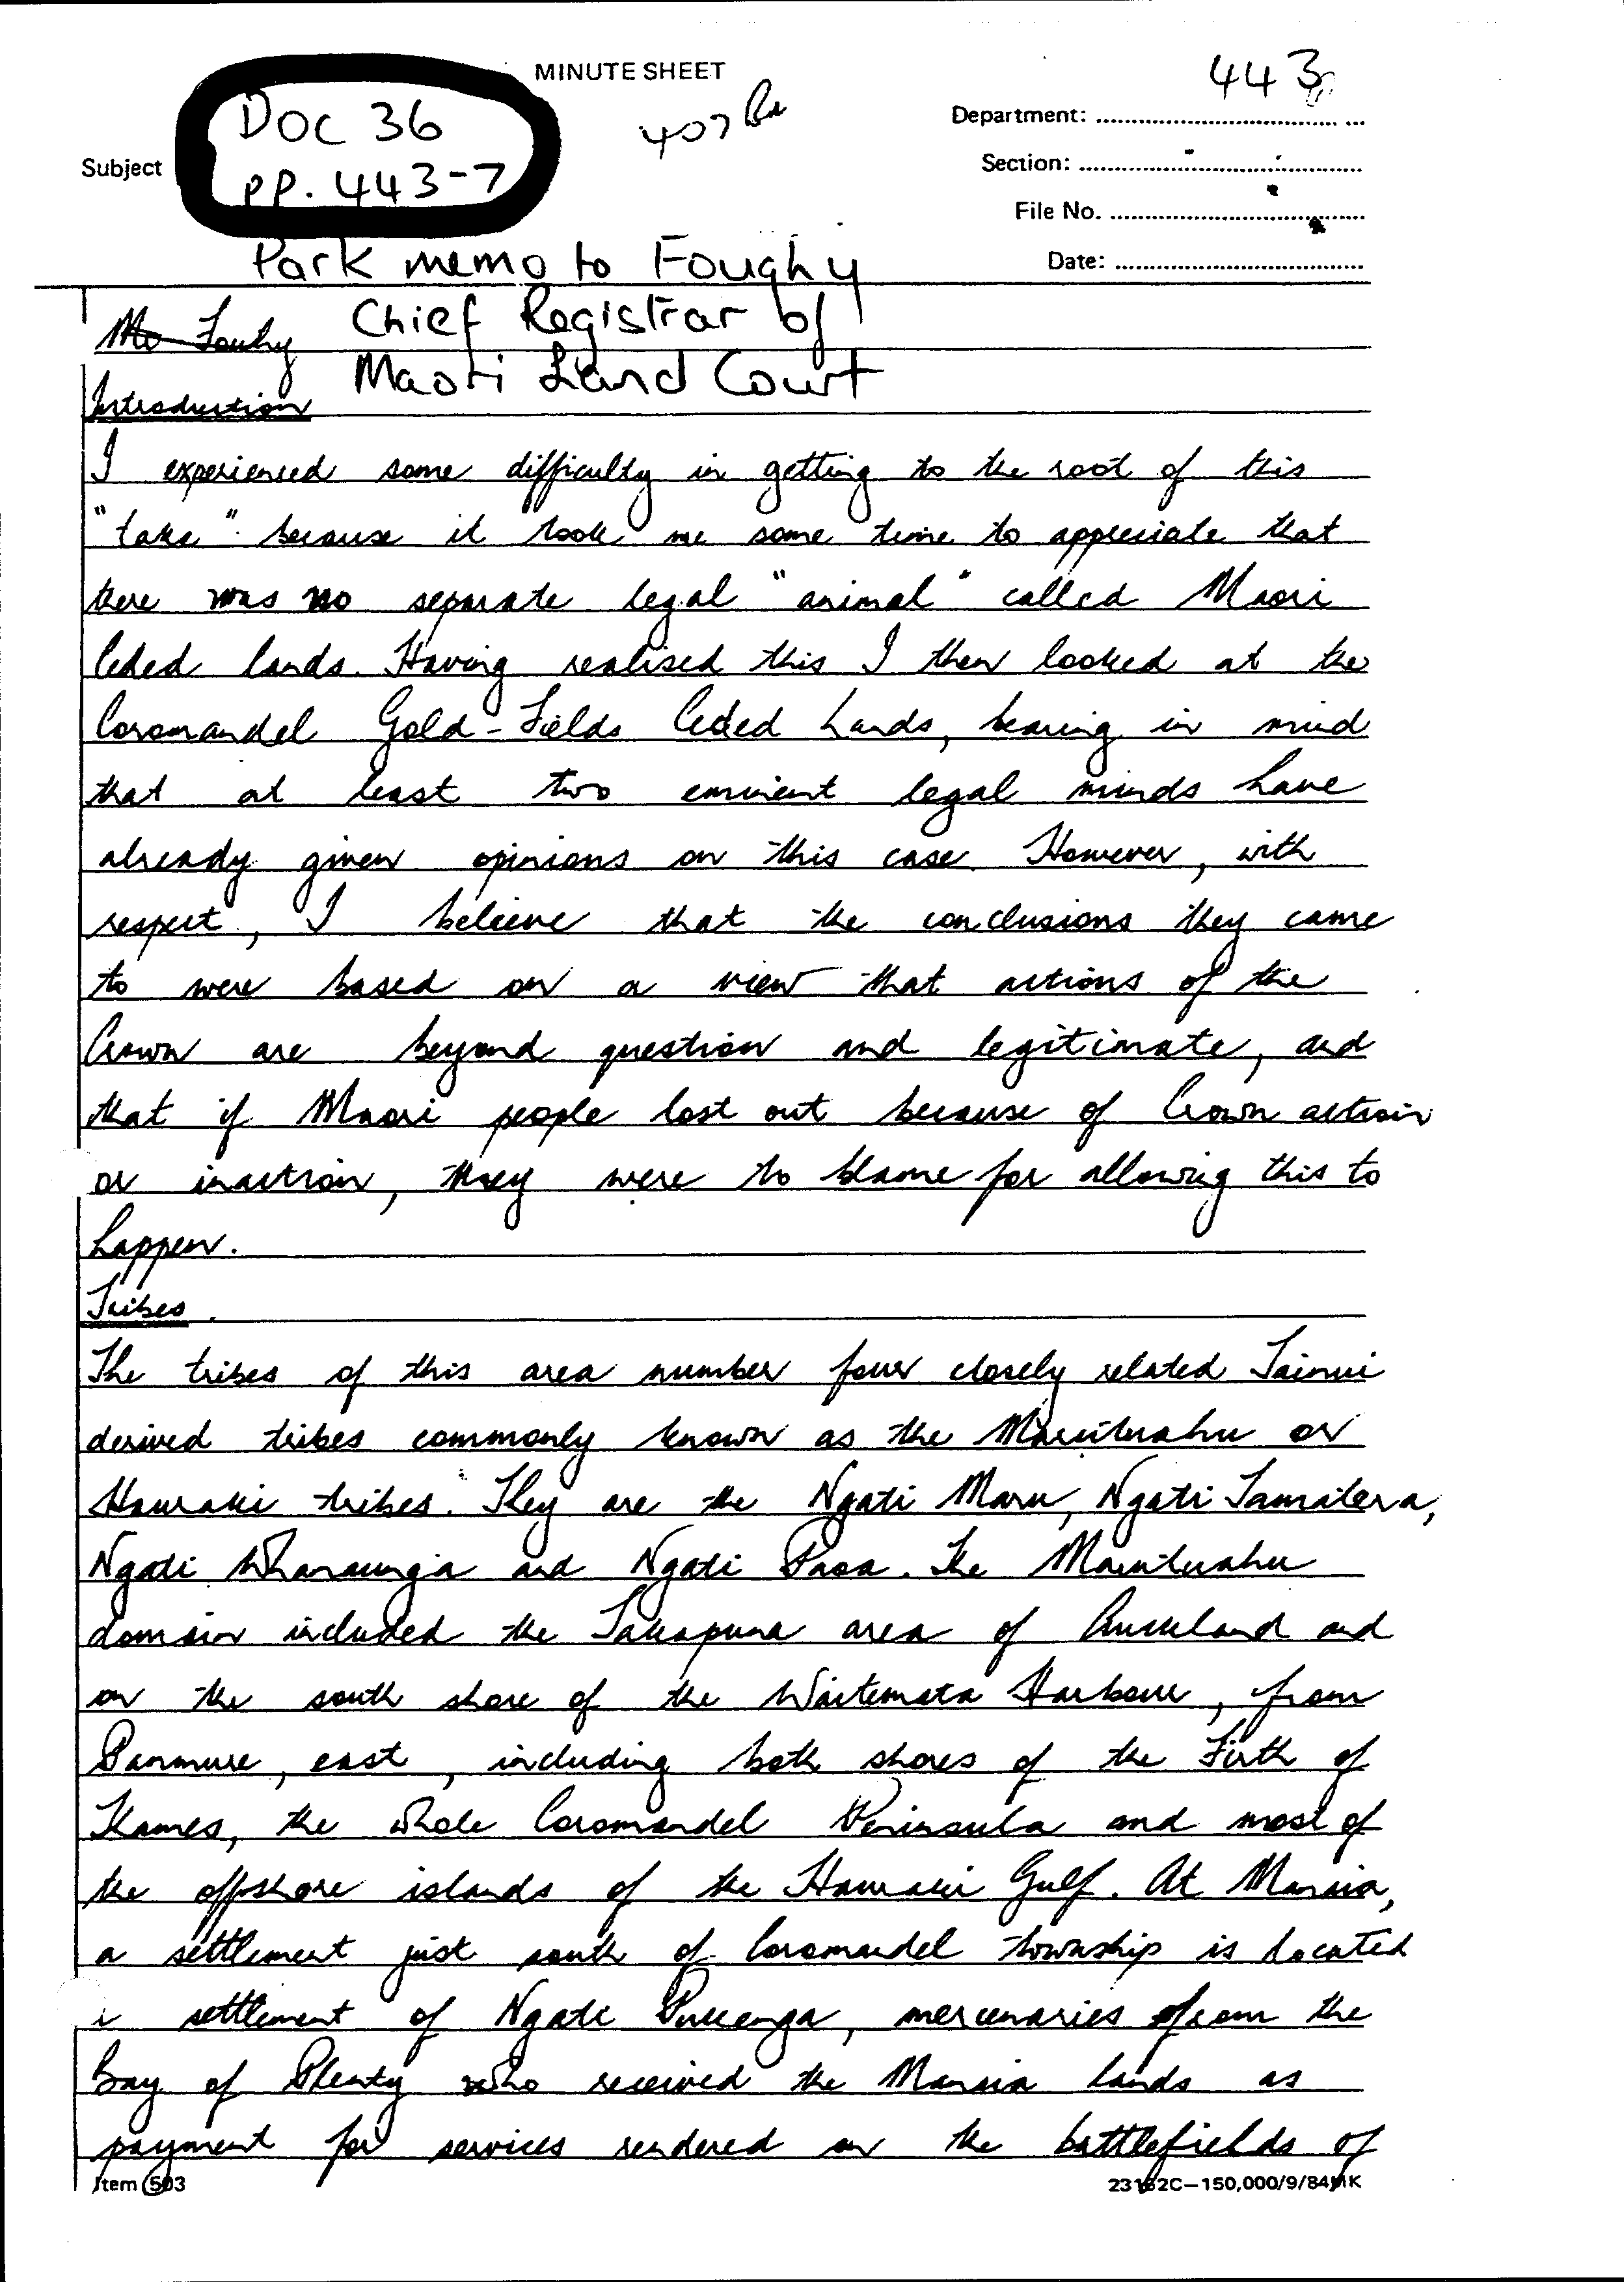 MINUTE SHEET
443
DOC 36
pp. 443-7
407
Department:
Subject
Section:
File No.
Date:
Park memo to Foughy
Chief Registrar of
Maori Land Court
Mr Fouhy
Introduction
I experienced some difficulty in getting to the root of this
"take" because it took me some time to appreciate that
there was no separate legal "animal" called Maori
Ceded lands. Having realised this I then looked at the
Coromandel Gold-Fields Ceded Lands, bearing in mind
that at least two eminent legal minds have
already given opinions on this case. However, with
respect, I believe that the conclusions they came
to were based on a view that actions of the
Crown are beyond question and legitimate, and
that if Maori people lost out because of Crown action
or inaction, they were to blame for allowing this to
happen.
Tribes.
The tribes of this area number four closely related Tainui
derived tribes commonly known as the Marutuahu or
Hauraki tribes. They are the Ngati Maru, Ngati Tamatera,
Ngati Whanaunga and Ngati Paoa. The Marutuahu
domain included the Takapuna area of Auckland and
on the south shore of the Waitemata Harbour, from
Panmure, east, including both shores of the Firth of
Thames, the whole Coromandel Peninsula and most of
the offshore islands of the Hauraki Gulf. At Manaia,
a settlement just south of Coromandel township is located
a settlement of Ngati Pukenga, mercenaries from the
Bay of Plenty who received the Manaia lands as
payment for services rendered on the battlefields of
Item 503
23162C–150,000/9/84MK